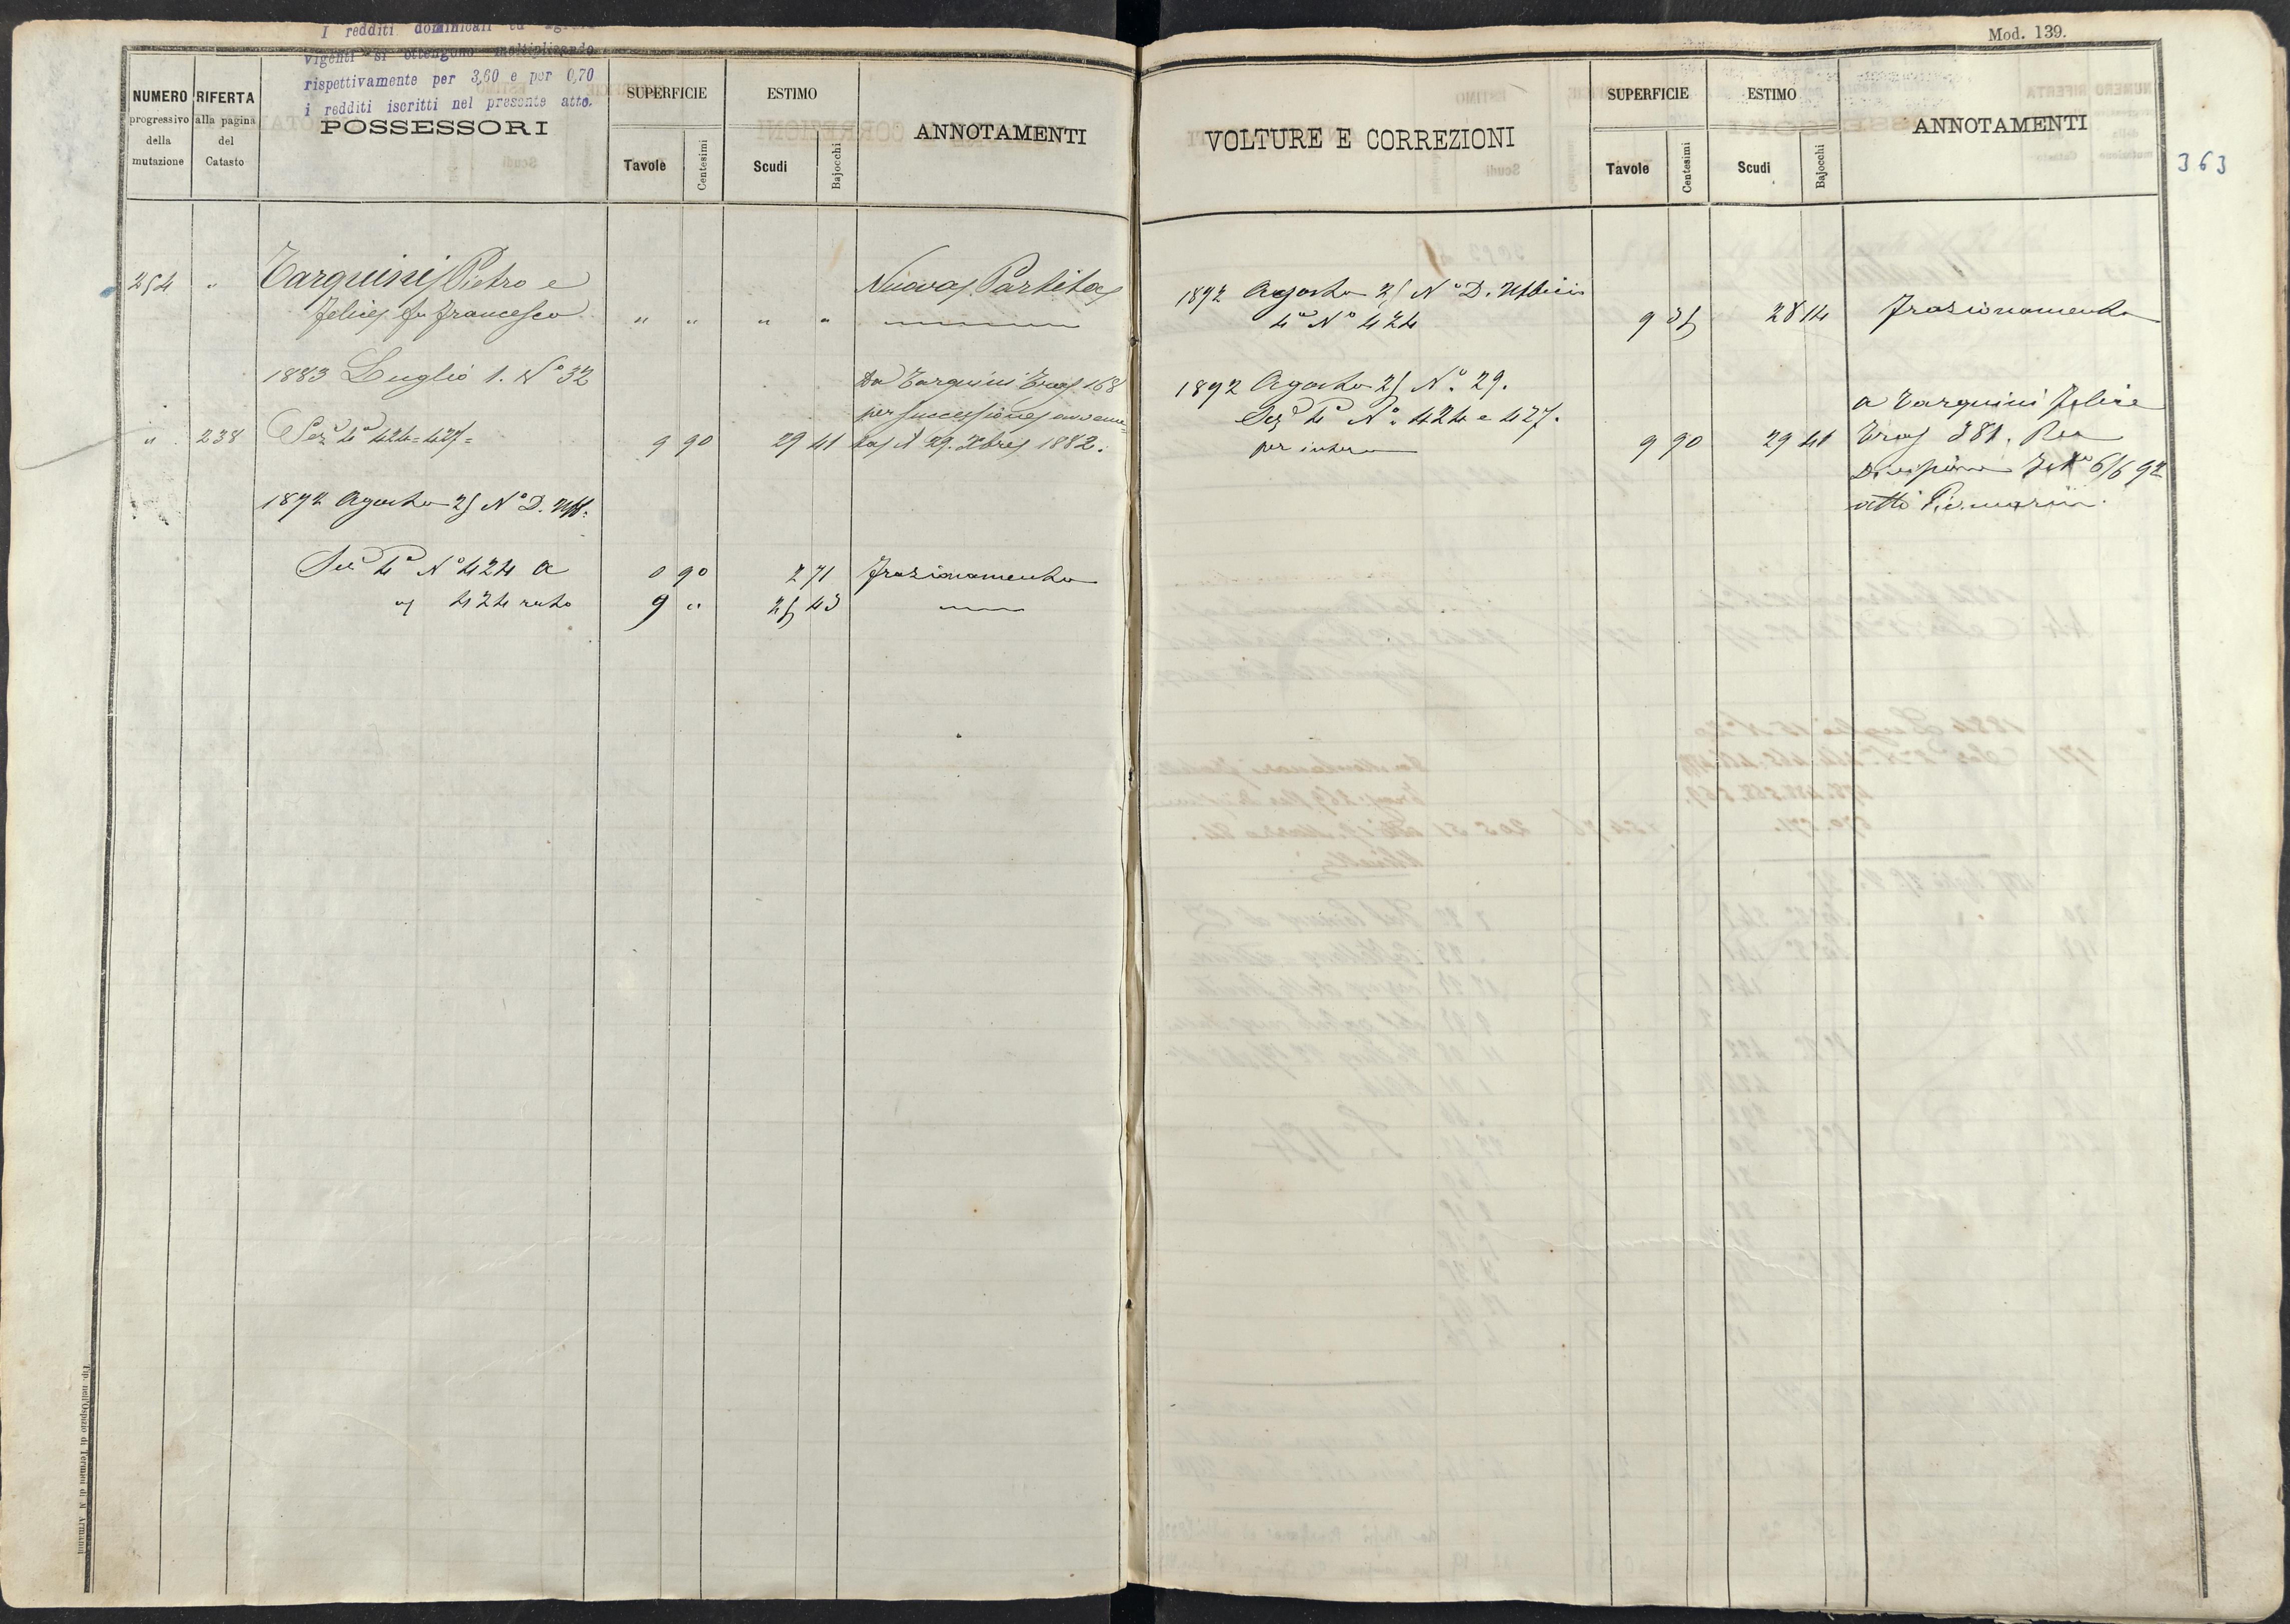 I redditi dominicali ed agrari
vigenti si ottengono moltiplicando
rispettivamente per 3,60 e per 0,70
i redditi iscritti nel presente atto.
NUMERO progressivo della mutazione
RIFERTA alla pagina del Catasto
POSSESSORI
SUPERFICIE
Tavole
Centesimi
ESTIMO
Scudi
Bajocchi
ANNOTAMENTI
254 " Tarquini Pietro e Nuova Partita
Felice fu Francesco " " " "
1883 Luglio 1. N° 32 Da Tarquini Trag 168
per successione avvenu=
" 238 Sez 4a 424=427= 9 90 29 41 ta il 29. Xbre 1882.
1892 Agosto 25 N° D. Uff.
Sez 4a N° 424 a 0 90 2 71 Frazionamento
" 424 resto 9 " 25 43
Mod. 139.
VOLTURE E CORREZIONI
SUPERFICIE
Tavole
Centesimi
ESTIMO
Scudi
Bajocchi
ANNOTAMENTI
363
1892 Agosto 25 N° D. Ufficio
4a N° 424 9 35 28 14 Frazionamento
1892 Agosto 25 N° 29.
Sez 4a N° 424 e 427. a Tarquini Felice
per intero 9 90 29 41 Trag 381. Per
Divisione 6/6 92
atti
Tip. nell'Ospizio di Termini di N. Armanni